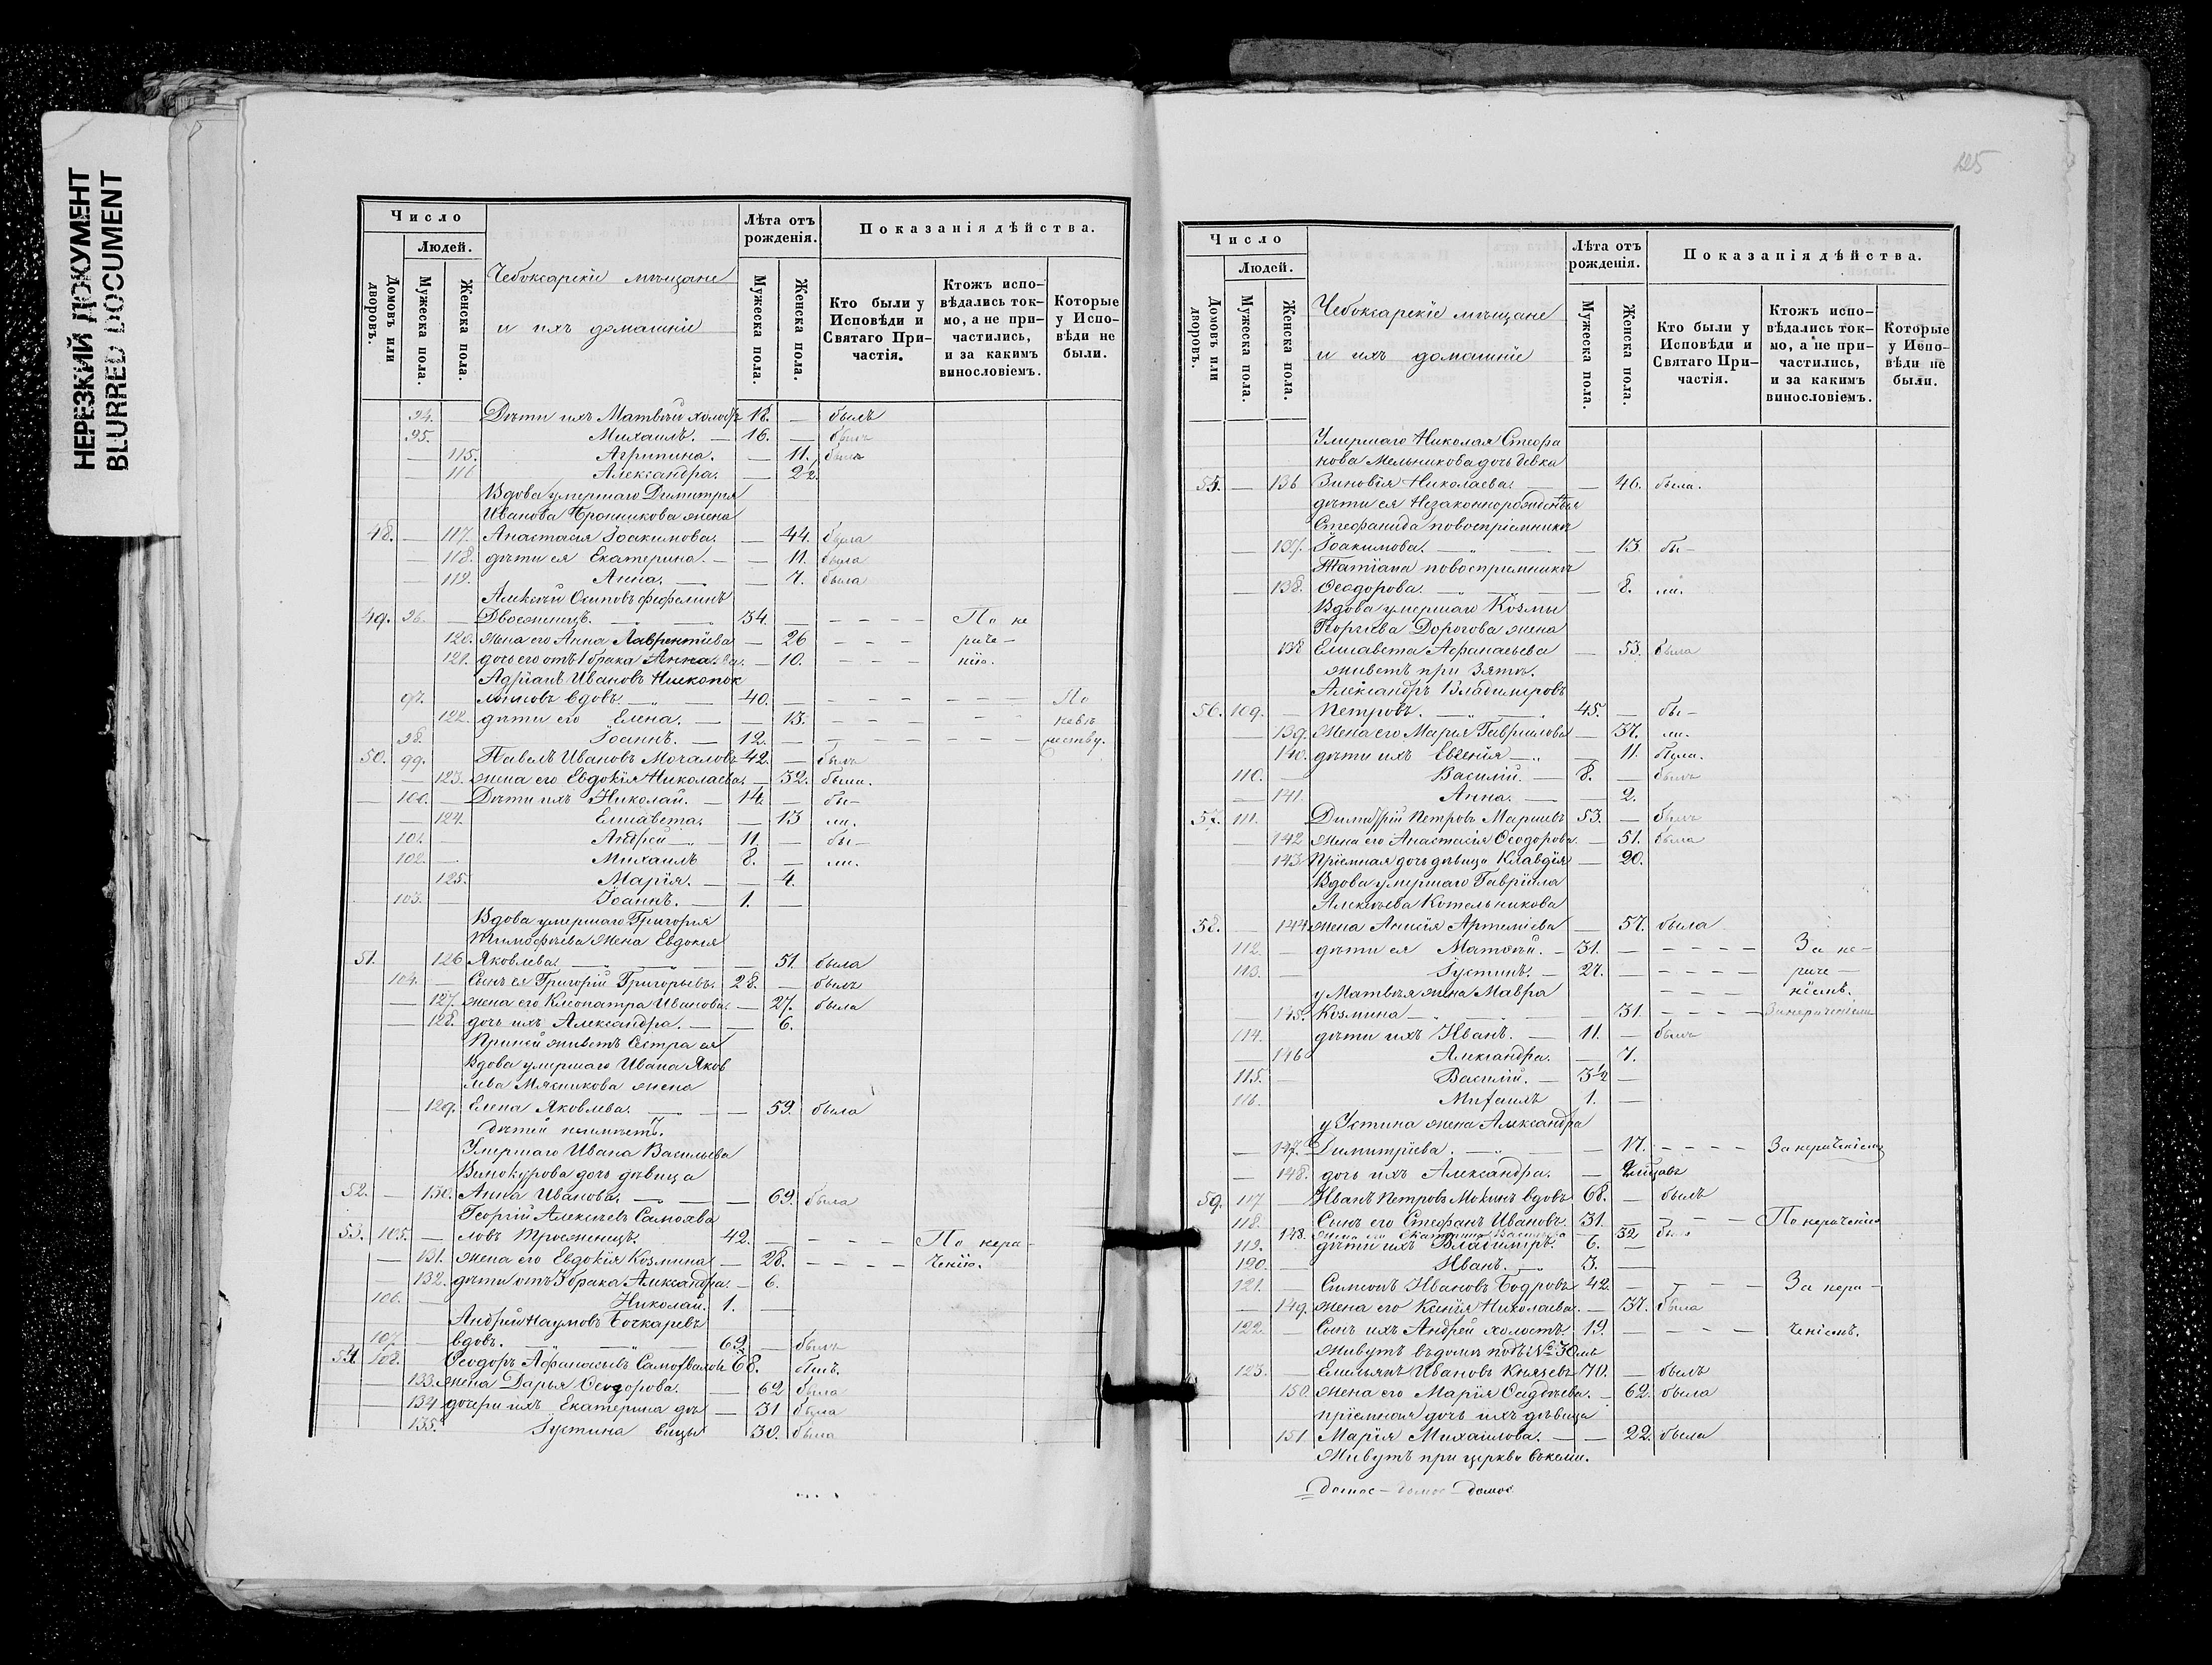 НЕРЕЗКИЙ ДОКУМЕНТ
BLURRED DOCUMENT
Число
Людей.
Домовъ или дворовъ.
Мужеска пола.
Женска пола.
Чебоксарскіе мѣщане
и ихъ домашніе
Лѣта отъ рожденія.
Мужеска пола.
Женска пола.
Показанія дѣйства.
Кто были у Исповѣди и Святаго Причастія.
Ктожъ исповѣдались токмо, а не причастились, и за какимъ винословіемъ.
Которые у Исповѣди не были.
94. Дѣти ихъ Матвѣй холостъ 18. — былъ
95. Михаилъ. — 16. — былъ
— 115. Агрипина. — 11. была
— 116 Александра. — 2½.
Вдова умершаго Димитрія
Иванова Пронникова жена
48. — 117. Анастасія Іоакимова. — 44. была
— 118. дѣти ея Екатерина. — — 11. была
— 119. Анна. — — 7. была
Алексѣй Осиповъ
49. 96. — Двоеженецъ. — — 34. — — — — — По не
120. жена его Анна Лаврентіева — 26 — — — раче—
121. дочь его отъ 1 брака Анна. — 10. — — — нію.
Адріанъ Ивановъ
97. вдовъ. — 40. — — — — — По
122. дѣти его Елена. — — 13. — — —
98. Іоаннъ. — 12. — — — —
50. 99. Павелъ Ивановъ Мочаловъ 42. — былъ
— 123. жена его Евдокія Николаева. — 32. была.
— 100. — Дѣти ихъ Николай. — 14. — бы—
— 124. Елисавета. — 13 ли.
101. — Андрей — 11. — бы—
102. — Михаилъ 8. — ли.
125. Марія. — — 4.
103. — Іоаннъ. — 1. —
Вдова умершаго Григорія
Тимофѣева жена Евдокія
51. 126 Яковлева. — — — — 51. была
104. — Сынъ ея Григорій Григорьевъ. 28. — былъ
— 127. жена его Клеопатра Иванова. — 27. была
— 128. дочь ихъ Александра. — — 6.
При ней живетъ Сестра ея
Вдова умершаго Ивана Яков
лева Мясникова жена
— 129. Елена Яковлева. — — — 59. была
дѣтей неимѣетъ.
Умершаго Ивана Васильева
Винокурова дочь дѣвица
52. — 130. Анна Иванова. — — — 69. была
Георгій Алексѣевъ Самохва
53. 105. — ловъ Троеженецъ. 42. — — — — По нера—
— 131. жена его Евдокія Козмина — 28. — — — — ченію.
— 132. дѣти отъ 3 брака Александра. — 6.
106. — Николай. 1. —
Андрей Наумовъ Бочкаревъ
107. — вдовъ. — — 69. — былъ
54. 108. Ѳеодоръ Аѳанасьевъ Самохваловъ 68. былъ.
— 133. жена Дарья Ѳеодорова. — 62 была
— 134 дочери ихъ Екатерина дѣ — 31 была
— 135. Іустина вицы 30. была
125
Число
Людей.
Домовъ или дворовъ.
Мужеска пола.
Женска пола.
Чебоксарскіе мѣщане
и ихъ домашніе
Лѣта отъ рожденія.
Мужеска пола.
Женска пола.
Показанія дѣйства.
Кто были у Исповѣди и Святаго Причастія.
Ктожъ исповѣдались токмо, а не причастились, и за какимъ винословіемъ.
Которые у Исповѣди не были.
Умершаго Николая Стефа
нова Мельникова дочь девка
55. — 136 Зиновія Николаева. — — 46. была.
дѣти ея Незаконнорожденныя
Стефанида повоспріемнику
— 137. Іоакимова. — „ — — 13. бы—
Татіана повоспріемнику
— 138. Ѳеодорова. — — — 8. ли.
Вдова умершаго Козмы
Георгіева Дорогова жена
138 Елисавета Аѳанасьева — 53. была
живетъ при Зятѣ.
Александръ Владимеровъ
56. 109. — Петровъ. — „ — 45. — бы—
— 139. Жена его Марія Гавриилова — 37. ли.
140. дѣти ихъ Евгенія — „ — 11. была.
110. — Василій. — 8. — былъ
— 141. Анна. — — 2.
57. 111. — Димитрій Петровъ 53. — былъ
— 142 жена его Анастасія Ѳеодорова. — 51. была
— 143. Пріемная дочь дѣвица Клавдія — 20.
Вдова умершаго Гавріила
Алексѣева Котельникова
58. — 144. жена Анисія Артеміева — 57. была
112. — дѣти ея Матѳей. — 31. — — — — — За не—
113. — Іустинъ. — 27. — — — — — раче—
у Матвѣя жена Мавра — — — ніемъ.
— 145. Козмина — — — 31. — — — — Занераченіемъ
114. дѣти ихъ Иванъ. — 11. — былъ
— 146 Александра. — 7.
115. — Василій. — 3½ —
116. Михаилъ 1. —
у Устина жена Александра
— 147. Димитріева. — „ — 17. — — — — Занераченіемъ
— 148. дочь ихъ Александра. —
59. 117 — Иванъ Петровъ Мокинъ вдовъ 68. — былъ
118. Сынъ его Стефанъ Ивановъ. 31. — — — По нераченію
148. жена его Екатерина Васильева — 32
119. — дѣти ихъ Владимиръ. 6. —
120. — Иванъ. — 3. —
121. Симеонъ Ивановъ Бодровъ 42. — — — — За нера—
— 149. жена его Ксенія Николаева. — 37. была
122. — Сынъ ихъ Андрей холостъ. 19. — — — — ченіемъ.
Живутъ въ домѣ подъ № 30мъ
123. — Емельянъ Ивановъ Князевъ 70. — былъ
150. жена его Марія — 62. была
пріемная дочь ихъ дѣвица
151 Марія Михаилова. — — 22. была
Живутъ при церкви въ келіи.